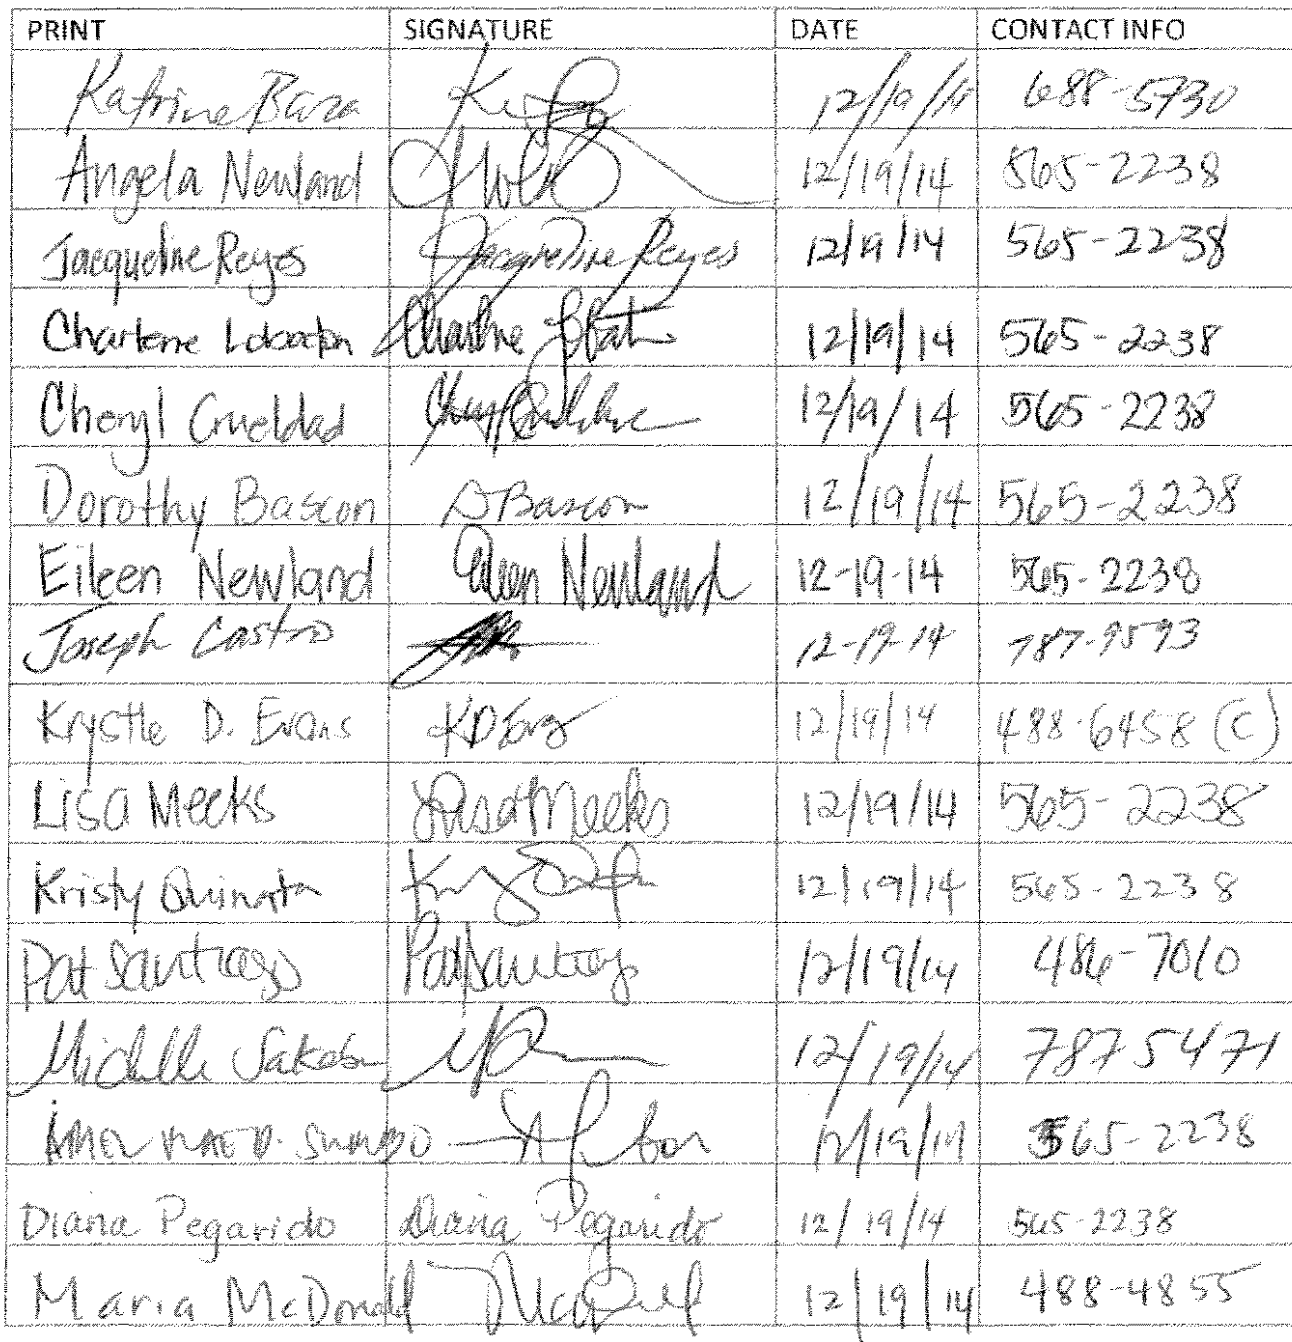 PRINT SIGNATURE DATE CONTACT INFO
Katrine Baza 12/19/14 688-5730
Angela Newland 12/19/14 565-2238
Jacqueline Reyes Jacqueline Reyes 12/19/14 565-2238
Charlene Lobaton Charlene 12/19/14 565-2238
Cheryl Crueldad 12/19/14 565-2238
Dorothy Bascon D Bascon 12/19/14 565-2238
Eileen Newland Eileen Newland 12-19-14 565-2238
Joseph Castro 12-19-14 787-9593
Krystle D. Evans 12/19/14 488-6458 (C)
Lisa Meeks Lisa Meeks 12/19/14 565-2238
Kristy Quinata 12/19/14 565-2238
Pat Santiago Pat Santiago 12/19/14 486-7010
Michelle 12/19/14 787 5471
12/19/14 565-2238
Diana Pegarido Diana Pegarido 12/19/14 565-2238
Maria McDonald 12/19/14 488-4855